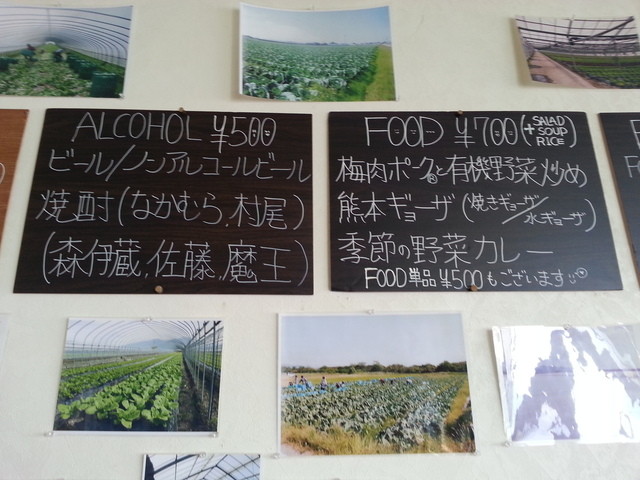 ALCOHOL ¥500
ビール/ノンアルコールビール
焼酎(なかむら,村尾)
(森伊蔵,佐藤,魔王)
FOOD ¥700(+SALAD SOUP RICE)
梅肉ポークと有機野菜炒め
熊本ギョーザ(焼きギョーザ/水ギョーザ)
季節の野菜カレー
FOOD単品¥500もございます